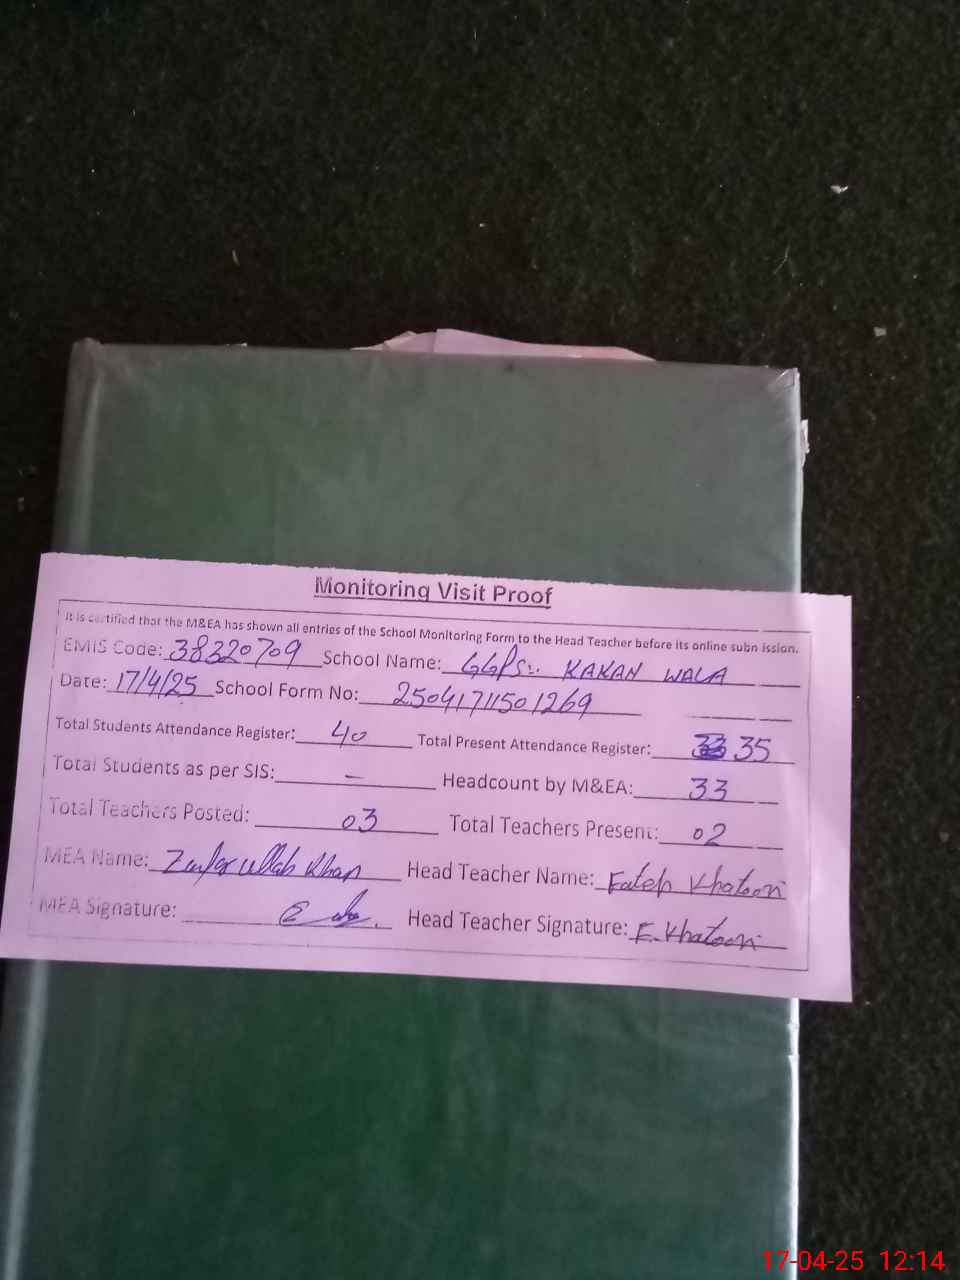 Monitoring Visit Proof
It is certified that the M&EA has shown all entries of the School Monitoring Form to the Head Teacher before its online subn ission.
EMIS Code: 38320709 School Name: GGPS:. KAKAN WALA
Date: 17/4/25 School Form No: 25041711501269
Total Students Attendance Register: 40 Total Present Attendance Register: 35
Total Students as per SIS: — Headcount by M&EA: 33
Total Teachers Posted: 03 Total Teachers Present: 02
MEA Name: Zafar ullah Khan Head Teacher Name: Fateh Khatoon
MEA Signature: Head Teacher Signature: F. Khatoon
17-04-25 12:14